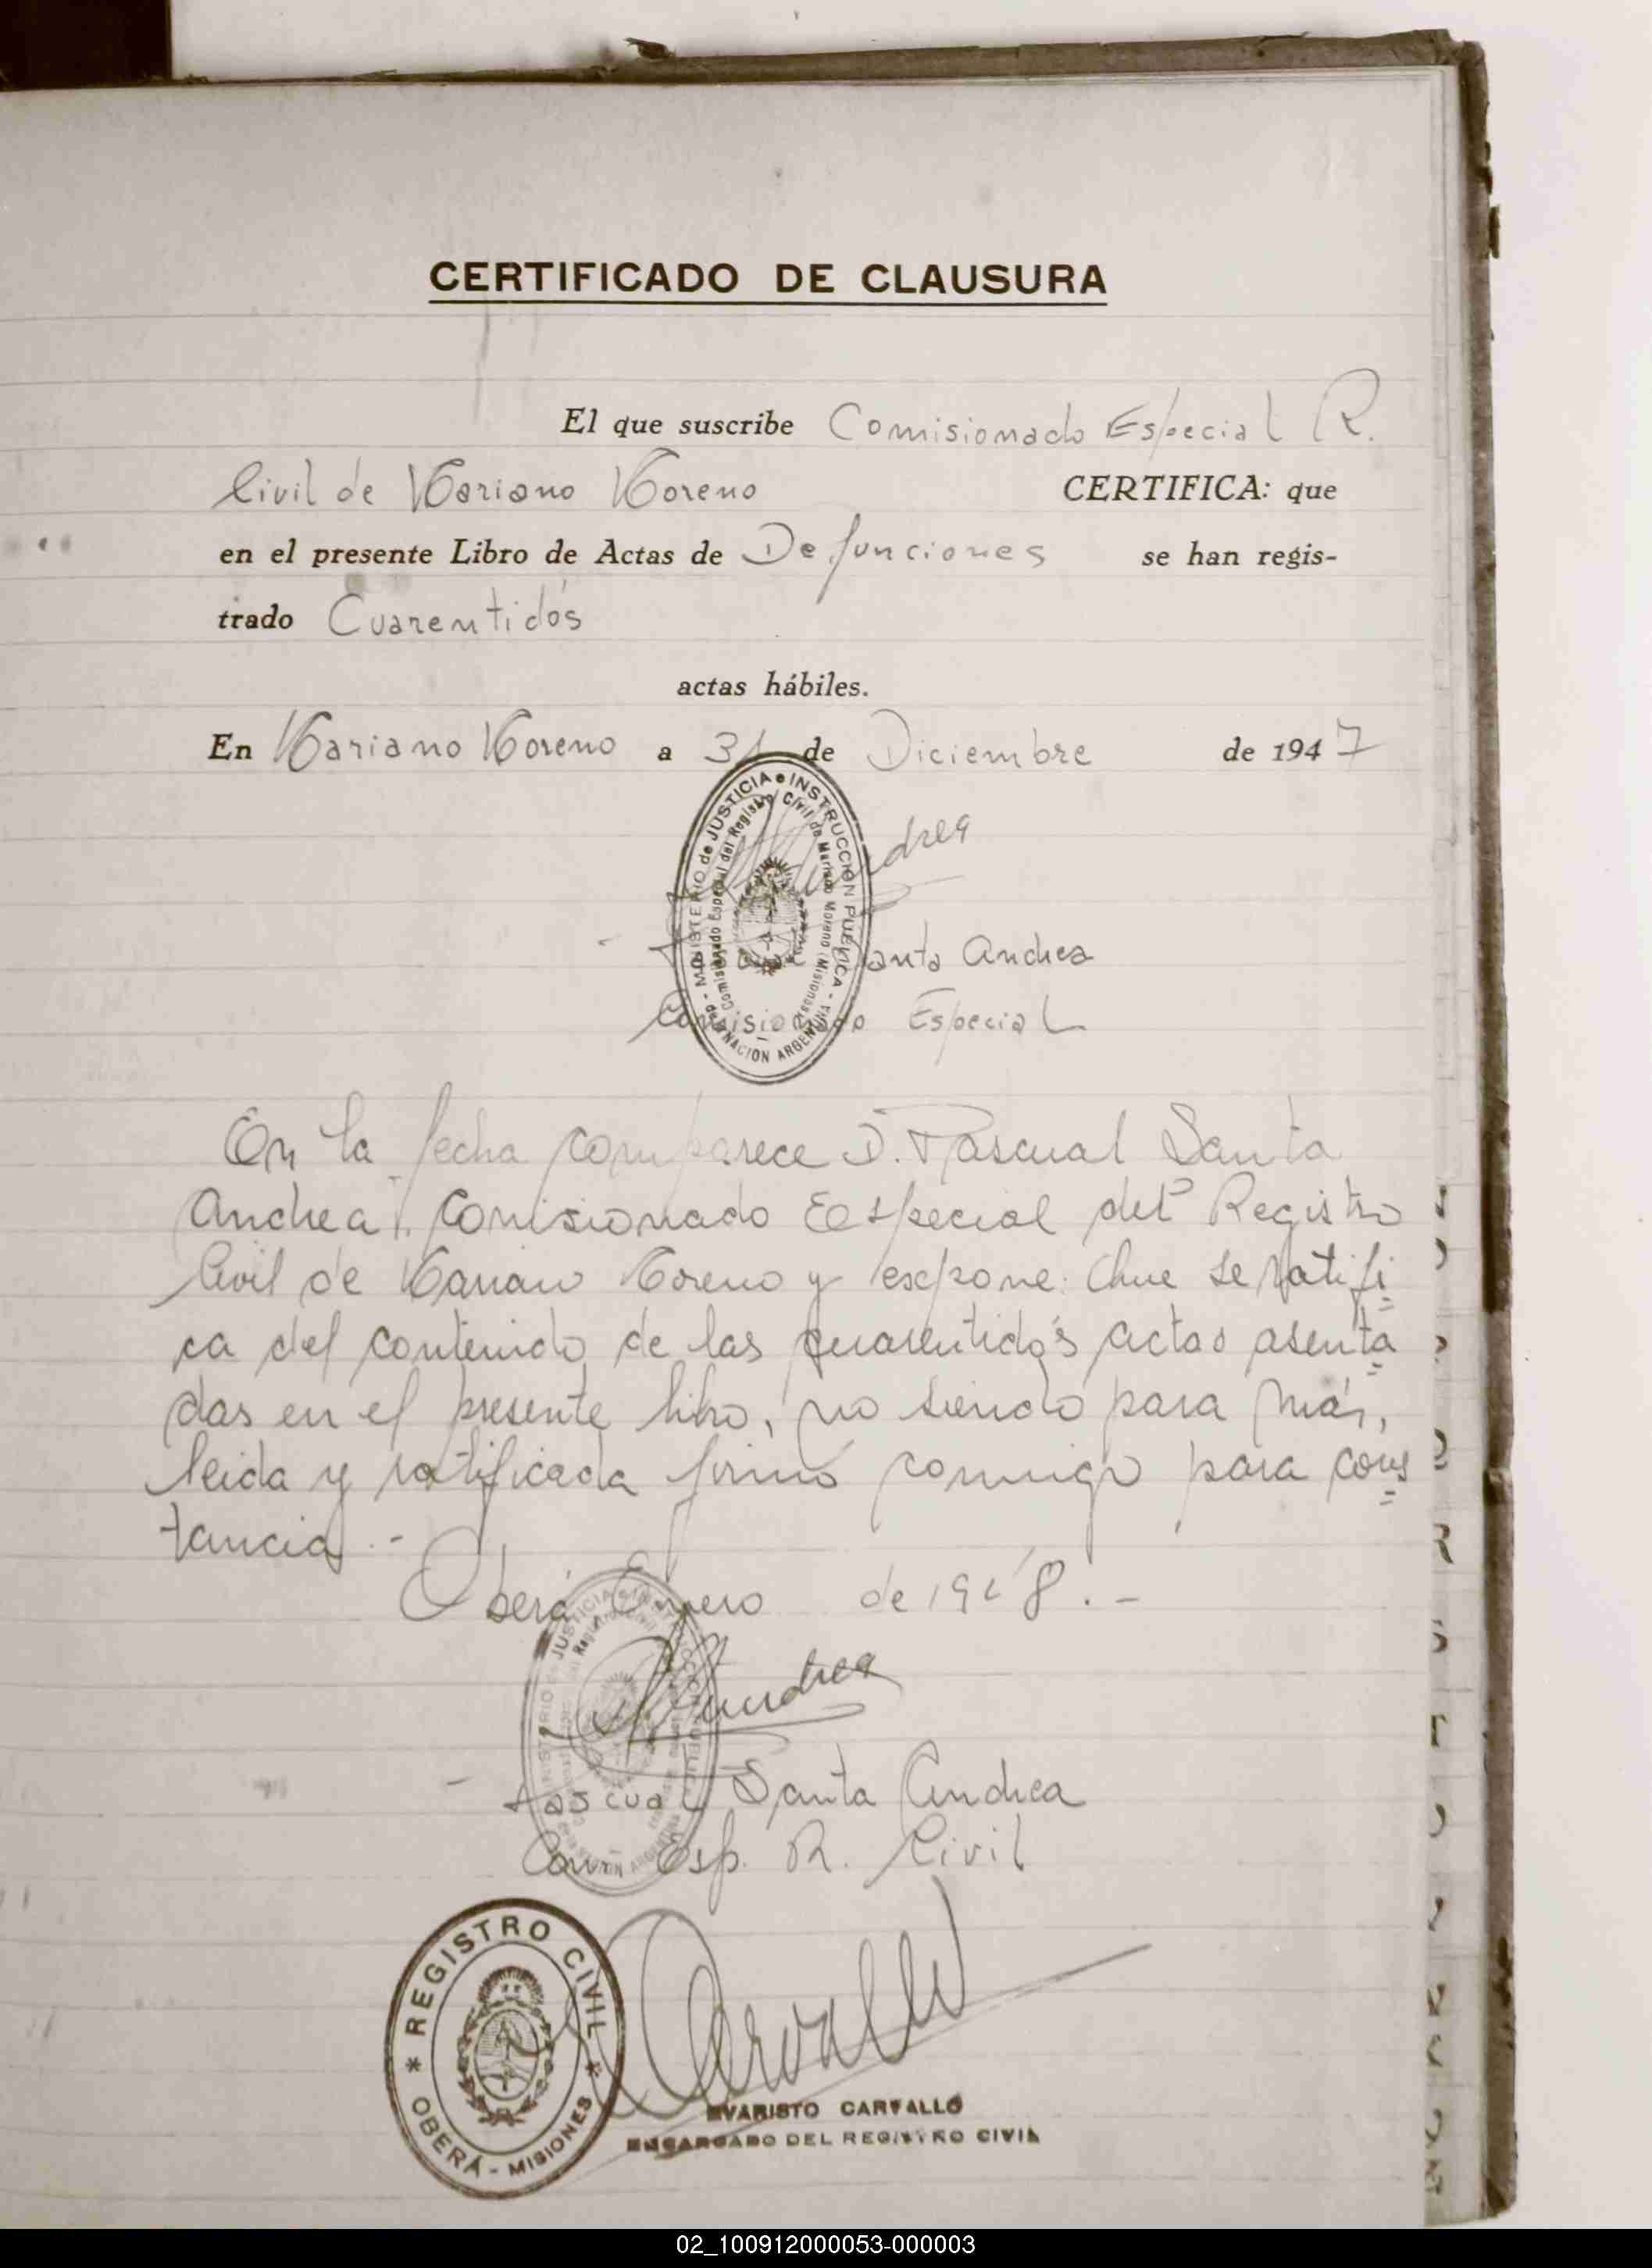 CERTIFICADO DE CLAUSURA
El que suscribe Comisionado Especial R.
Civil de Mariano Moreno CERTIFICA: que
en el presente Libro de Actas de Defunciones se han regis-
trado Cuarentidós
actas hábiles.
En Mariano Moreno a 31 de Diciembre de 1947
MINISTERIO de JUSTICIA e INSTRUCCION PUBLICA - de la NACION ARGENTINA -
Comisionado Especial del Registro Civil de Mariano Moreno (Misiones)
Santa Andrea
Comisionado Especial
En la fecha comparece D. Pascual Santa
Andrea, Comisionado Especial del Registro
Civil de Mariano Moreno y expone: Que se ratifi
ca del contenido de las cuarentidós actas asenta
das en el presente libro, no siendo para más,
leida y ratificada firmó conmigo para cons
tancia.-
Oberá Enero de 1948.-
- Pascual Santa Andrea
Com. Esp. R. Civil
REGISTRO CIVIL
* OBERÁ - MISIONES *
Carvallo
EVARISTO CARVALLO
ENCARGADO DEL REGISTRO CIVIL
02_100912000053-000003